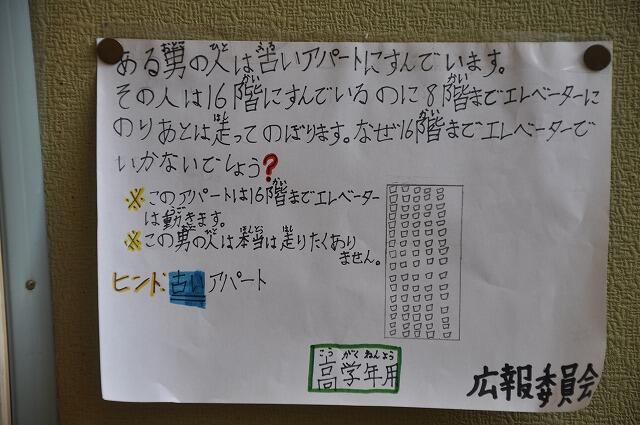 ある男の人は古いアパートにすんでいます。
その人は16階にすんでいるのに8階までエレベーターに
のりあとは走ってのぼります。なぜ16階までエレベーターで
いかないでしょう?
※このアパートは16階までエレベーター
は動きます。
※この男の人は本当は走りたくあり
ません。
ヒント:古いアパート
高学年用
広報委員会